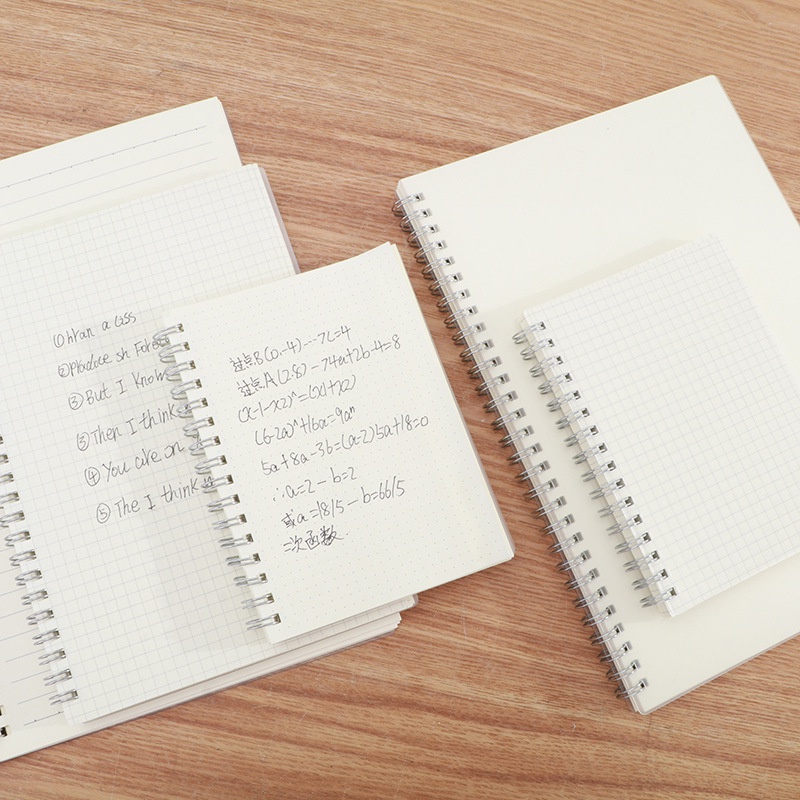 ① hran a Liss
② Place sh Fore
③ But I Know
③ Then I think
④ You are on
⑤ The I think
过点B(0,-4)---7C=4
过点A(2.8)-74a+2b-4=8
(x-1-x2)^=(x1+x2)
(6-2a)^+16a=9a^
5a+8a-36=(a-2)5a+18=0
∴a=2-b=2
或a=18/5-b=66/5
二次函数